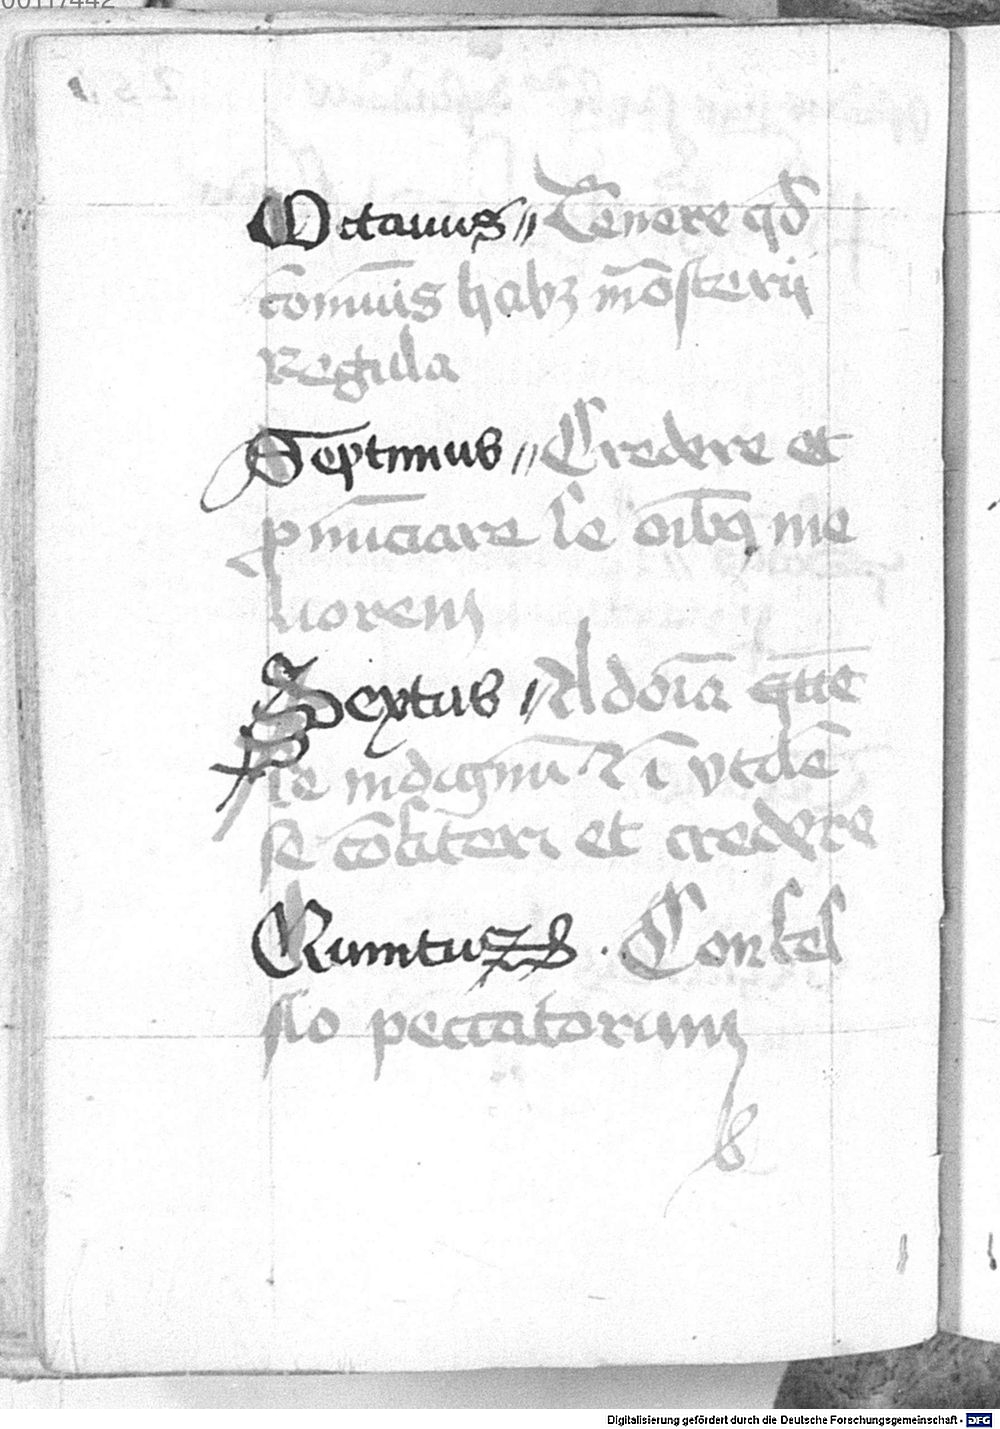 00117442
Octauus // Tenere qd̄
cōmuis habꝫ mōsterij
regula
Septimus // Credere et
ꝓnūciare se oībꝯ me
liorem
Sextus // Ad oīa
se indignū ⁊ īvtilē
se cōfiteri et credere
Quintus . Confes
sio peccatorum
Digitalisierung gefördert durch die Deutsche Forschungsgemeinschaft - DFG